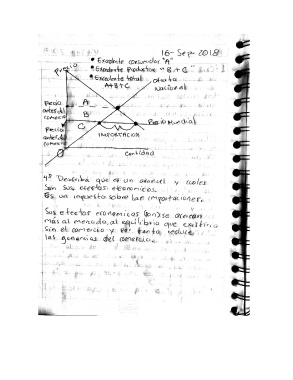 16-Sep-2018
• Exedente consumidor "A"
• Exedente Productor "B+C"
• Exedente total
A+B+C
Precio
oferta
Nacional
Precio
antes del
comercio
A
B
C
Precio
Mundial
IMPORTACION
Cantidad
4° Describa que es un arancel y cuales
son sus efectos economicos.
Es un impuesto sobre las importaciones.
Sus efectos economicos
más al mercado, al equilibrio que existiria
sin el comercio y reduce
las ganancias del comercio.